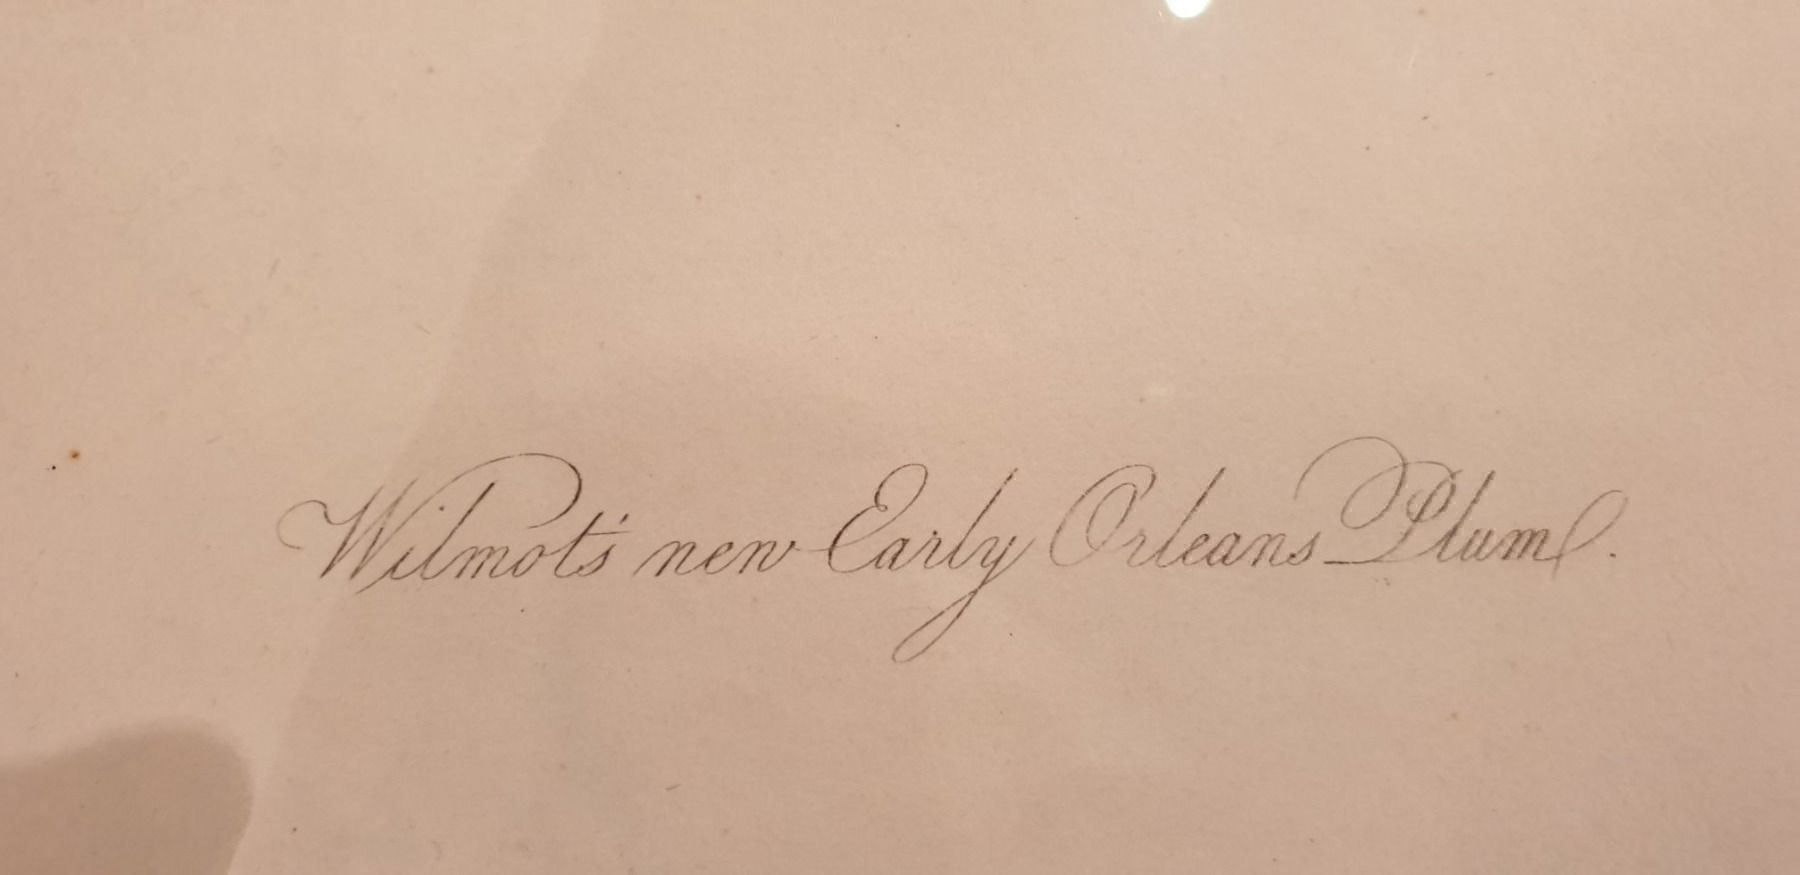 Wilmot's new Early Orleans Plum.